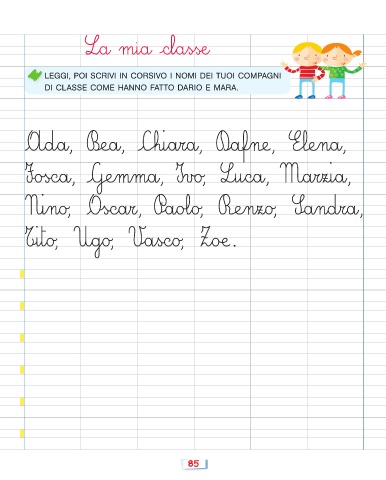 La mia classe
LEGGI, POI SCRIVI IN CORSIVO I NOMI DEI TUOI COMPAGNI
DI CLASSE COME HANNO FATTO DARIO E MARA.
Ada, Bea, Chiara, Dafne, Elena,
Fosca, Gemma, Ivo, Luca, Marzia,
Nino, Oscar, Paolo, Renzo, Sandra,
Tito, Ugo, Vasco, Zoe.
85